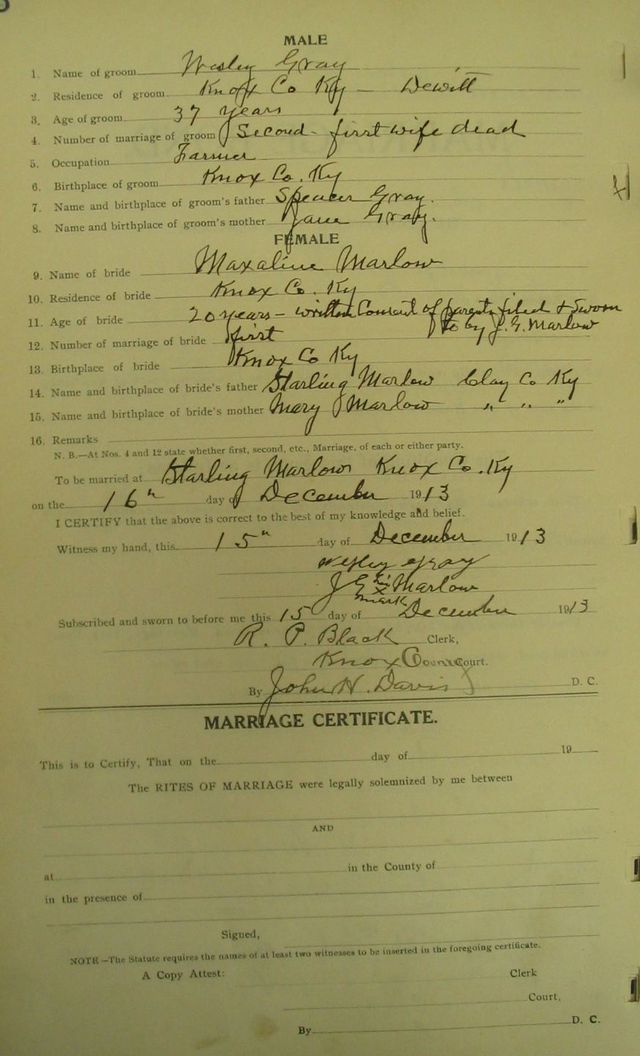 MALE
1. Name of groom Wesley Gray
2. Residence of groom Knox Co Ky - Dewitt
3. Age of groom 37 years
4. Number of marriage of groom Second - first wife dead
5. Occupation Farmer
6. Birthplace of groom Knox Co. Ky
7. Name and birthplace of groom's father Spencer Gray.
8. Name and birthplace of groom's mother Jane Gray.
FEMALE
9. Name of bride Maxaline Marlow
10. Residence of bride Knox Co. Ky
11. Age of bride 20 years - written Consent of parents filed & Sworn
to by J. G. Marlow
12. Number of marriage of bride first
13. Birthplace of bride Knox Co Ky
14. Name and birthplace of bride's father Starling Marlow Clay Co Ky
15. Name and birthplace of bride's mother Mary Marlow " " "
16. Remarks
N. B.—At Nos. 4 and 12 state whether first, second, etc., Marriage, of each or either party.
To be married at Starling Marlows Knox Co. Ky
on the 16th day of December 1913
I CERTIFY that the above is correct to the best of my knowledge and belief.
Witness my hand, this 15th day of December 1913
Wesley Gray
J G his x Marlow
mark
Subscribed and sworn to before me this 15 day of December 1913
R. P. Black Clerk,
Knox County Court.
By John H. Davis D. C.
MARRIAGE CERTIFICATE.
This is to Certify, That on the day of 19
The RITES OF MARRIAGE were legally solemnized by me between
AND
at in the County of
in the presence of
Signed,
NOTE—The Statute requires the names of at least two witnesses to be inserted in the foregoing certificate.
A Copy Attest: Clerk
Court,
By D. C.